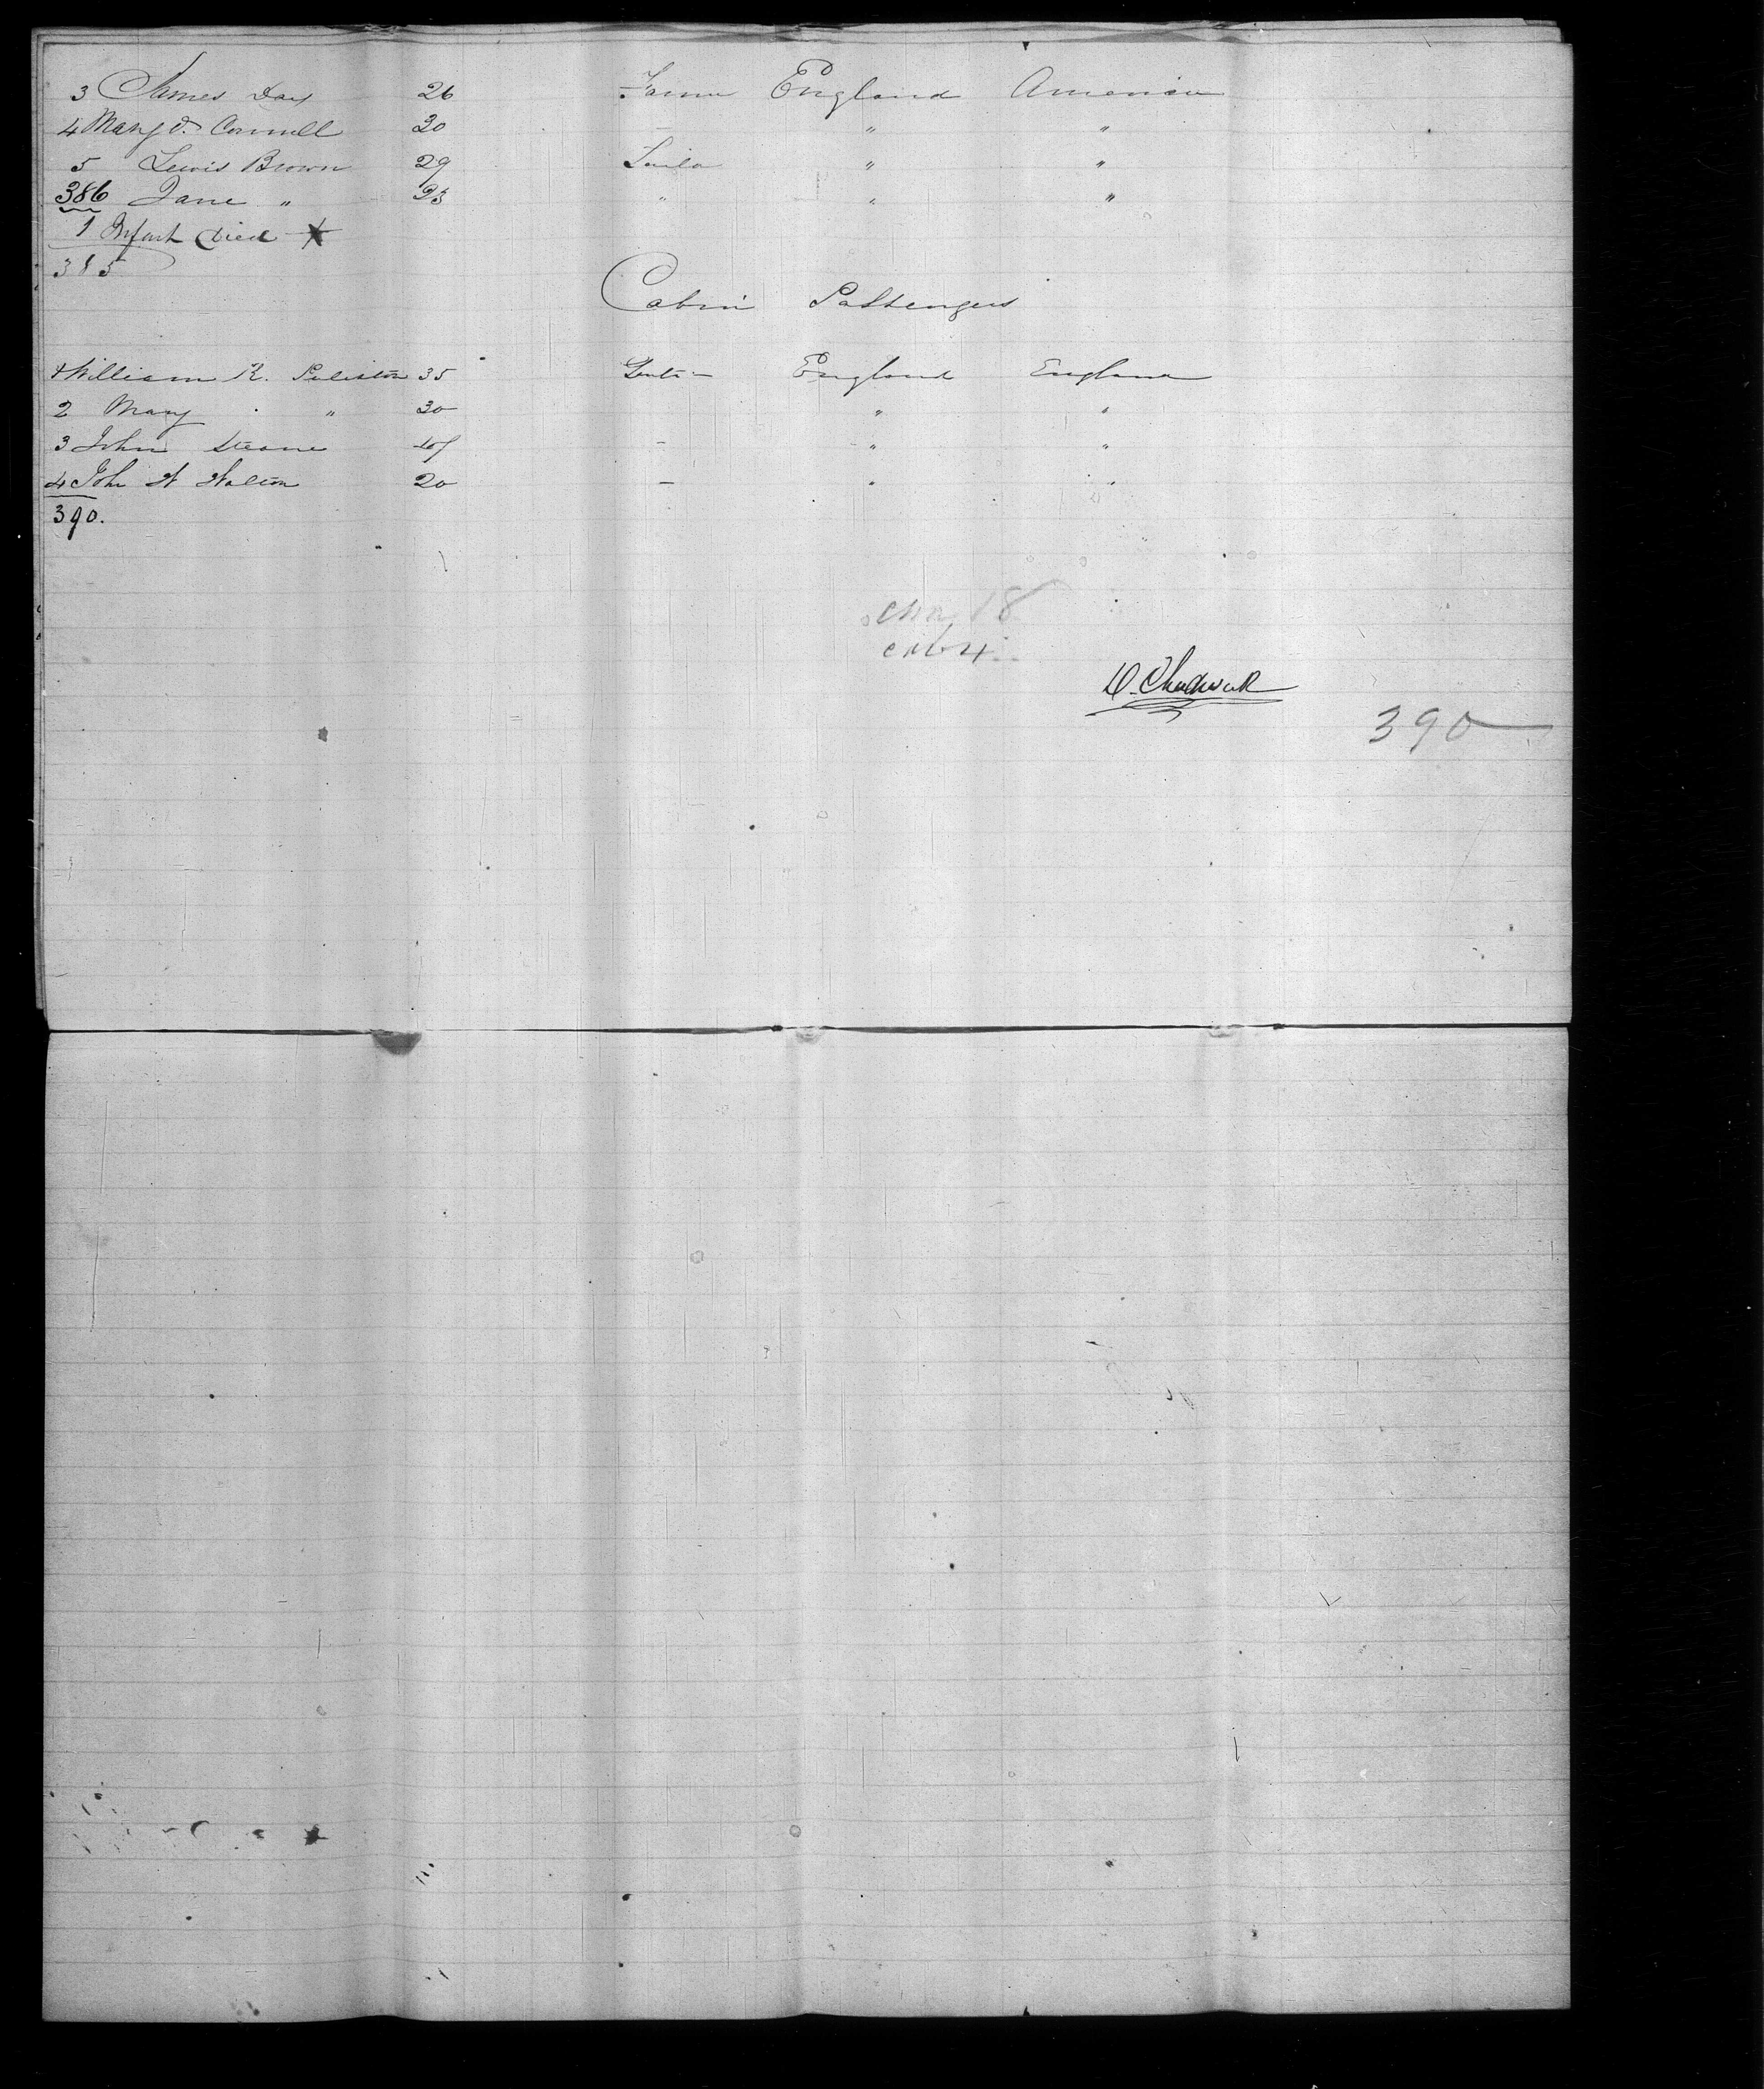 3 James Day 26 Farmer England America
4 Mary O. Connell 30 – " "
5 Lewis Brown 29 Tailor " "
386 Jane " 25 " " "
1 Infant Died
385
Cabin Passengers
William R. 35 England England
2 Mary " 30 " "
3 John Steane – " "
4 John W Walton 20 – " "
390.
18
cab 4
D. Chadwick
390